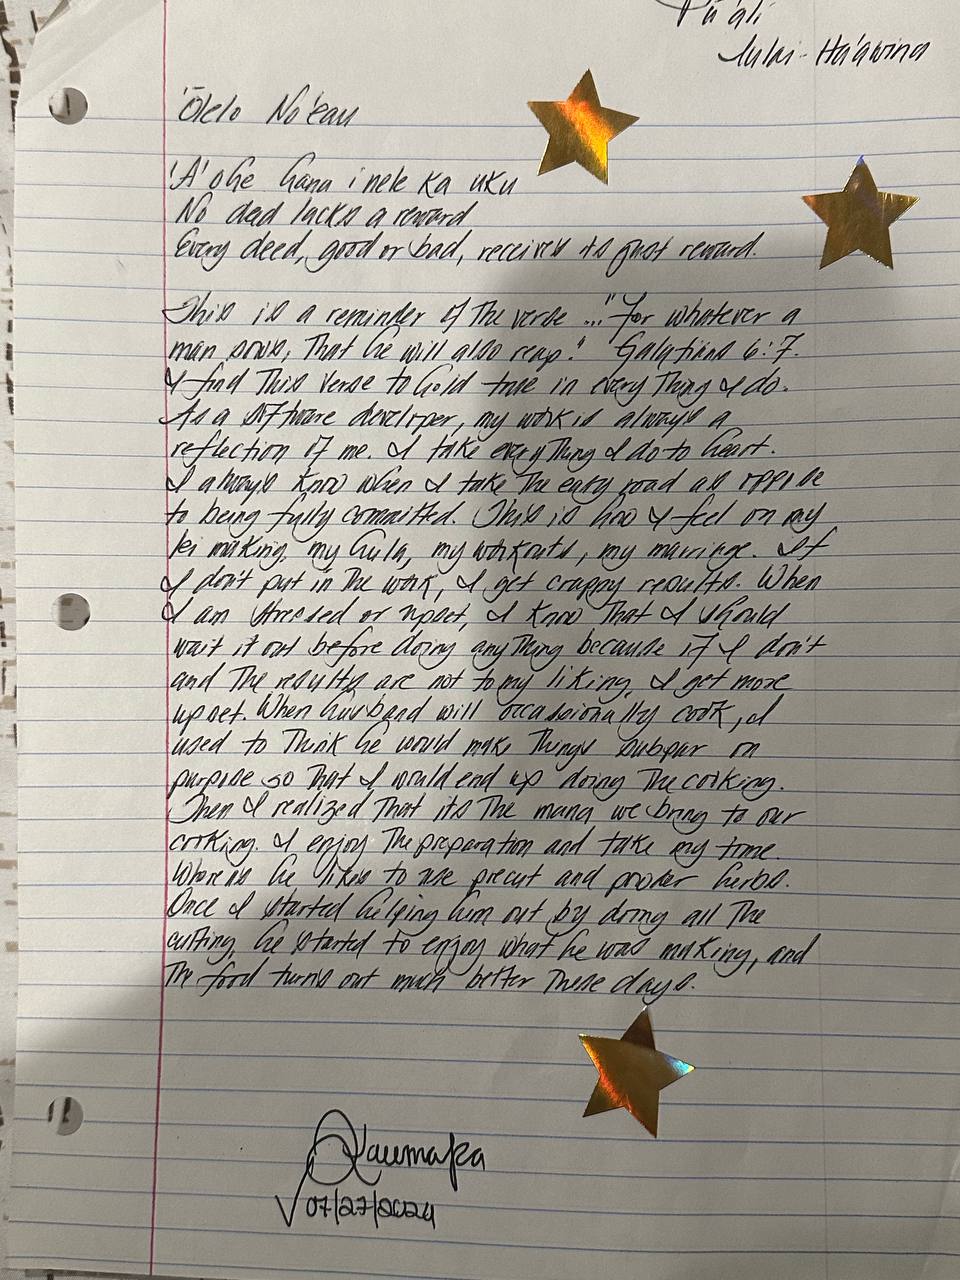 Pu'ali
Iulai - Ha'awina
'Ōlelo No'eau
'A'ohe hana i nele ka uku
No deed lacks a reward
Every deed, good or bad, receives its just reward.
This is a reminder of the verse ... "for whatever a
man sows, that he will also reap." Galatians 6:7.
I find this verse to hold true in everything I do.
As a software developer, my work is always a
reflection of me. I take everything I do to heart.
I always know when I take the easy road as oppose
to being fully committed. This is how I feel on my
lei making, my hula, my workouts, my marriage. If
I don't put in the work, I get crappy results. When
I am stressed or upset, I know that I should
wait it out before doing anything because if I don't
and the results are not to my liking, I get more
upset. When husband will occassionally cook, I
used to think he would make things subpar on
purpose so that I would end up doing the cooking.
Then I realized that its the mana we bring to our
cooking. I enjoy the preparation and take my time.
Whereas he likes to use precut and powder herbs.
Once I started helping him out by doing all the
cutting, he started to enjoy what he was making, and
the food turns out much better these days.
Kaumaka
07/27/2024